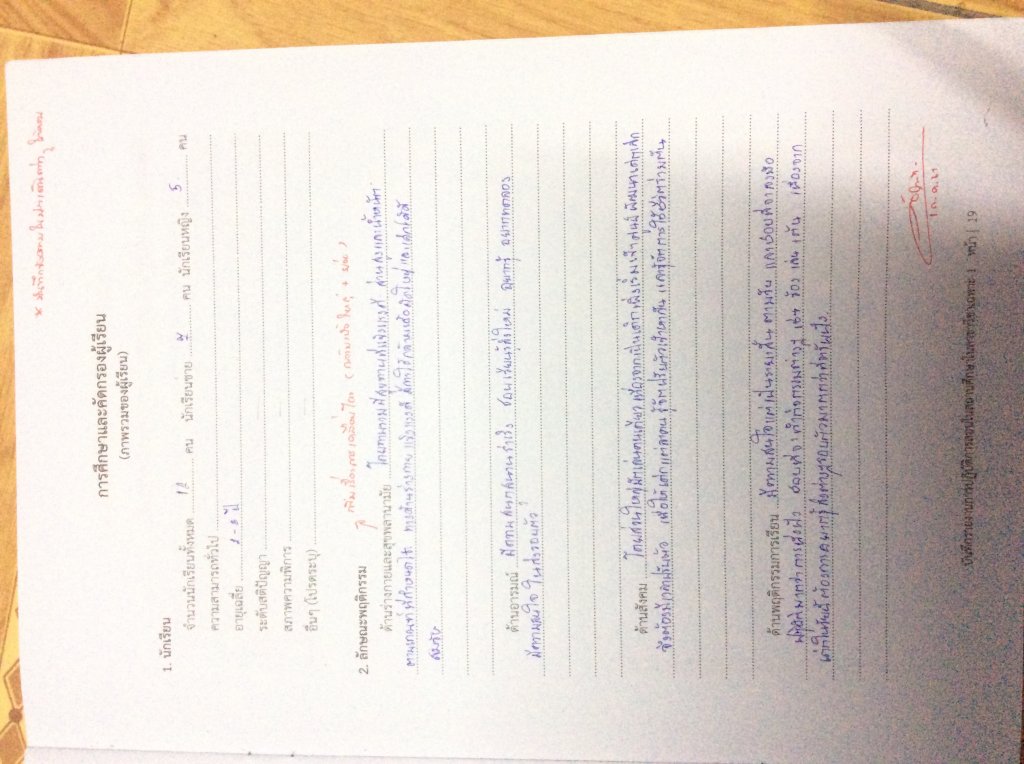 การศึกษาและคัดกรองผู้เรียน
(ภาพรวมของผู้เรียน)
1. นักเรียน
จำนวนนักเรียนทั้งหมด 12 คน นักเรียนชาย 7 คน นักเรียนหญิง 5 คน
ความสามารถทั่วไป
อายุเฉลี่ย 2-3 ปี
ระดับสติปัญญา
สภาพความพิการ
อื่นๆ (โปรดระบุ)
2. ลักษณะพฤติกรรม
ด้านร่างกายและสุขพลานามัย โดยภาพรวมมีสุขภาพที่แข็งแรงดี ส่วนสูงและน้ำหนัก
ตามเกณฑ์ที่กำหนดไว้ ทางด้านร่างกาย แข็งแรงดี
ด้านอารมณ์ มีความสนุกสนานร่าเริง ชอบเรียนรู้สิ่งใหม่ อยากรู้ อยากทดลอง
มีความสนใจในสิ่งรอบตัว
ด้านสังคม โดยส่วนใหญ่มักเล่นคนเดียว เนื่องจากเป็นเด็กเพิ่งเริ่มเข้าศูนย์พัฒนาเด็กเล็ก
จึงต้องมีการปรับตัว เพื่อให้เด็กแต่ละคนรู้จักปรับตัวเข้าหากัน และรู้จักการใช้ชีวิตร่วมกัน
ด้านพฤติกรรมการเรียน มีความสนใจแต่เป็นระยะสั้น ตามวัย และชอบที่จะลงมือ
ปฏิบัติมากกว่าการนั่งฟัง ชอบที่จะทำกิจกรรมต่างๆ เช่น ร้อง เล่น เต้น เนื่องจาก
เด็กในวัยนี้ต้องการค้นหา เรียนรู้สิ่งต่างๆรอบตัวมากกว่าที่จะนั่งฟัง
บันทึกรายงานการปฏิบัติการสอนในสถานศึกษาในสาขาวิชาเฉพาะ 1 หน้า | 19